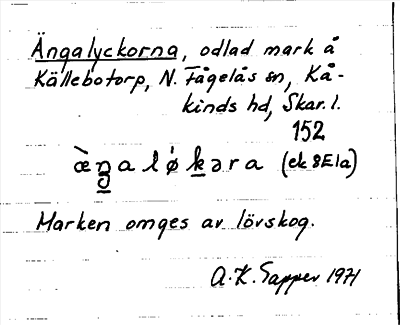 Ängalyckorna, odlad mark å
Källebotorp, N. Fågelås sn, Kå-
kinds hd, Skar. l.
152
æ̀ŋalǿkəra (ek 8E1a)
Marken omges av lövskog.
A.K. Sapper 1971